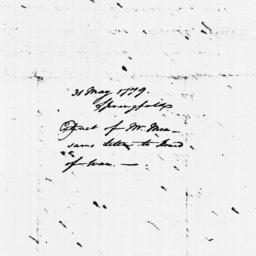 31 May 1779.
Springfield
Extract of Mr. Mea-
sams letter to Board
of War. —